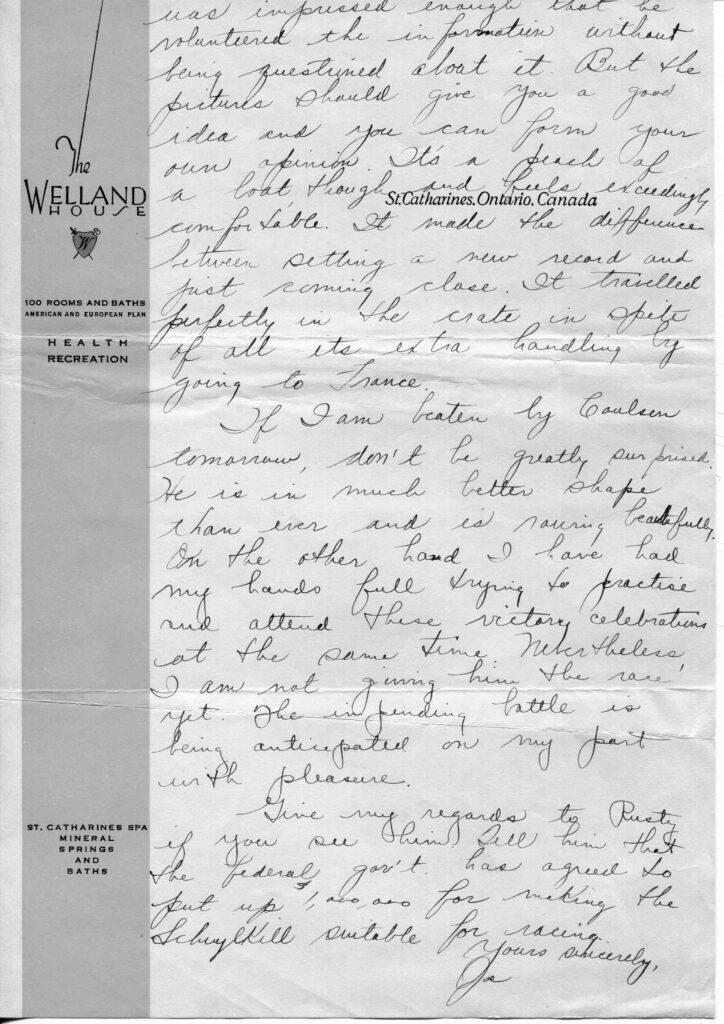 was impressed enough that he
volunteered the information without
being questioned about it. But the
pictures should give you a good
idea and you can form your
own opinion. It's a peach of
a boat though and feels exceedingly
comfortable. It made the difference
between setting a new record and
just coming close. It travelled
perfectly in the crate in spite
of all its extra handling by
going to France.
If I am beaten by Coulson
tomorrow, don't be greatly surprised.
He is in much better shape
than ever and is rowing beautifully.
On the other hand I have had
my hands full trying to practise
and attend these victory celebrations
at the same time. Nevertheless
I am not giving him the race
yet. The impending battle is
being anticipated on my part
with pleasure.
Give my regards to Rusty
if you see him. Tell him that
the federal gov't. has agreed to
put up $1,000,000 for making the
Schuylkill suitable for racing.
Yours sincerely,
Joe
The
WELLAND
HOUSE
W
St. Catharines, Ontario, Canada
100 ROOMS AND BATHS
AMERICAN AND EUROPEAN PLAN
HEALTH
RECREATION
ST. CATHARINES SPA
MINERAL
SPRINGS
AND
BATHS